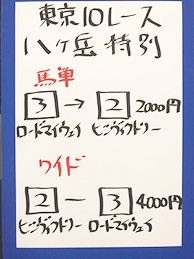 東京10レース
八ヶ岳特別
馬単
3→2 2000円
ロードマイウェイ ヒンヴィクトリー
ワイド
2－3 4000円
ヒンヴィクトリー ロードマイウェイ